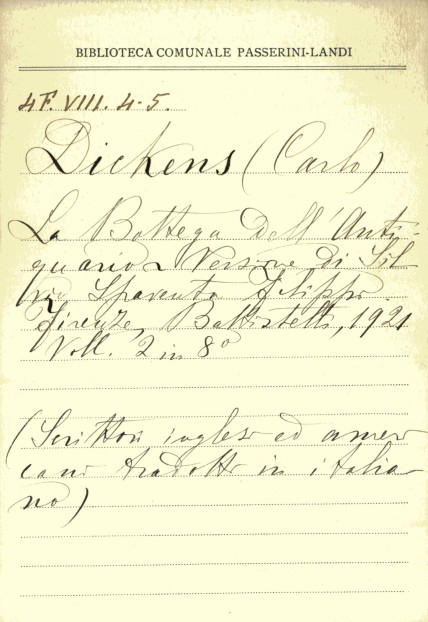 BIBLIOTECA COMUNALE PASSERINI-LANDI
4F. VIII. 4-5.
Dickens (Carlo)
La Bottega dell'Anti-
quario. Versione di Sil-
vio Spaventa Filippi.
Firenze, Battistelli, 1921
Voll. 2 in 8°
(Scrittori inglesi ed ameri
cani tradotti in italia
no)